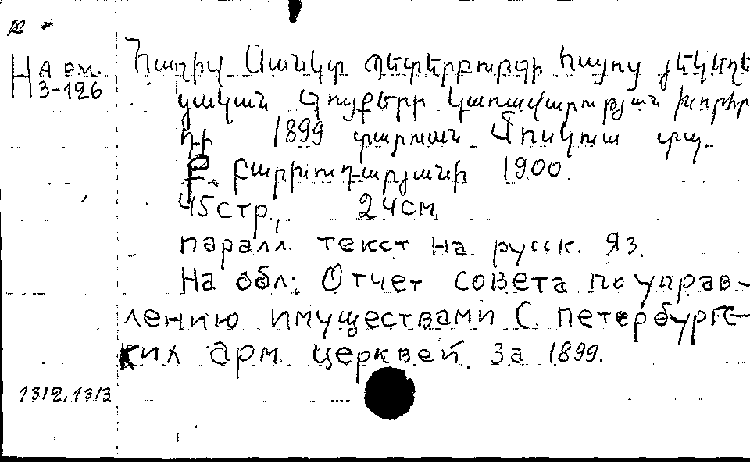 На арм.
3-126
Հաշիվ Սանկտ Պետերբուրգի հայոց եկեղե
ցական Գույքերի կառավարության խորհր
դի 1899 տարման Մոսկուա տպ.
Բ. բարխուդարյանի 1900.
45 стр., 24 см
паралл. текст на русск. яз.
На обл.: Отчет совета по управ-
лению имуществами С. петербургс-
ких арм. церквей. за 1899.
1312, 1313